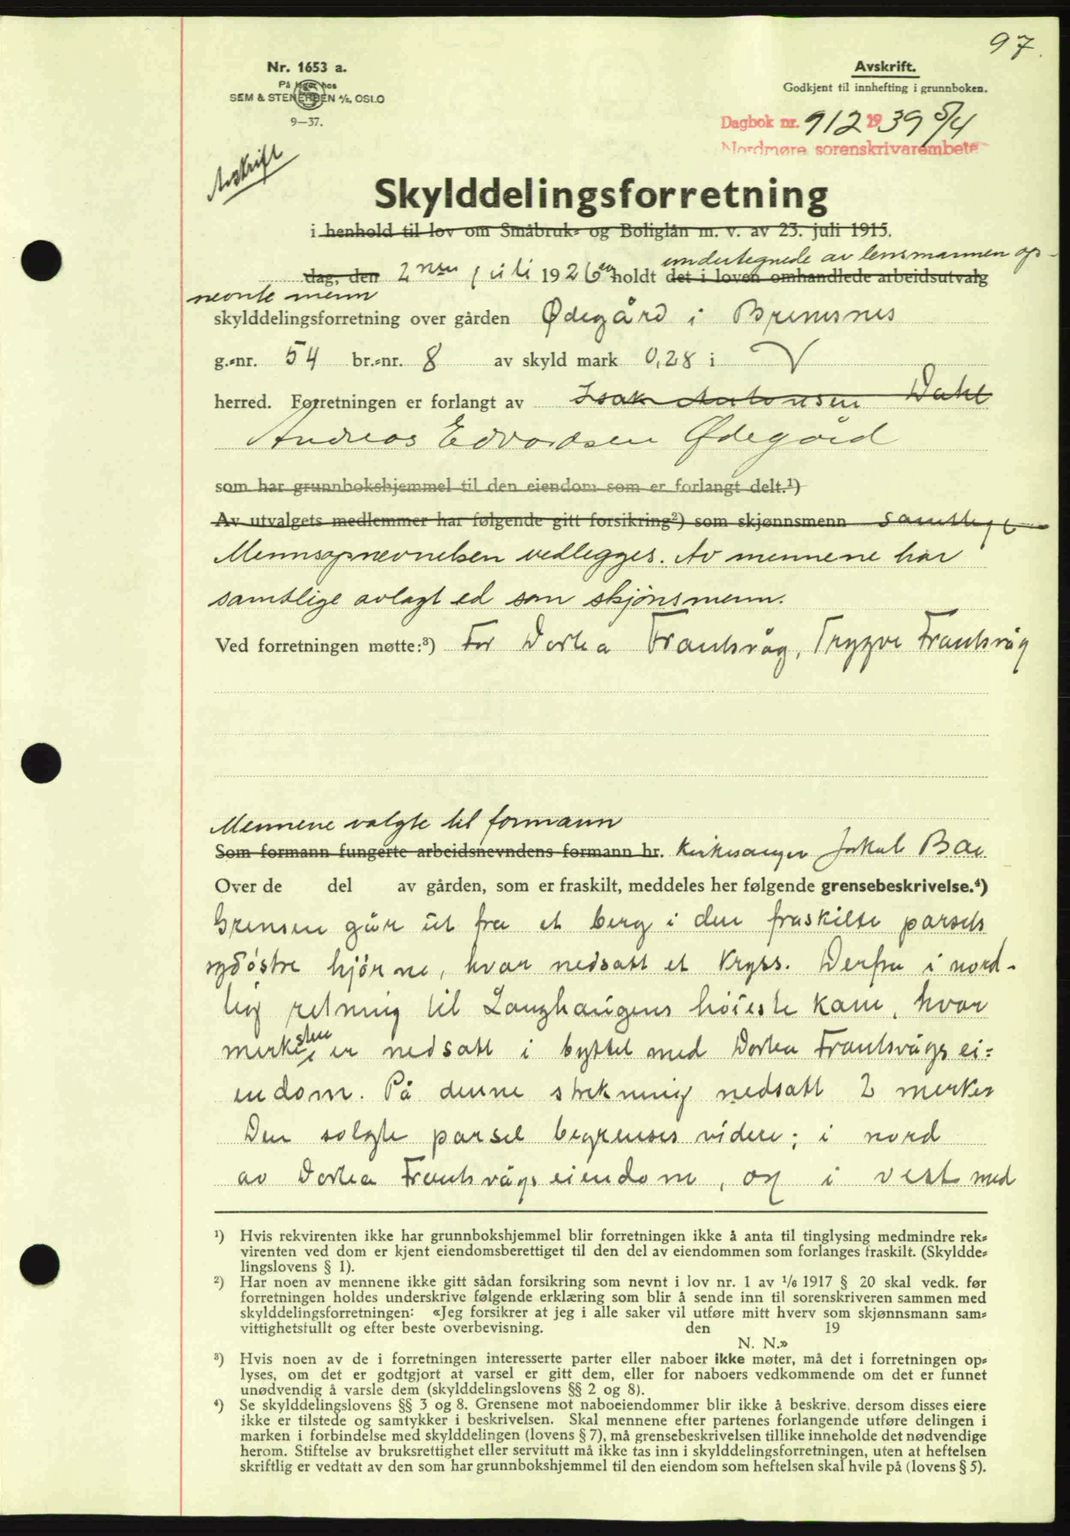 97.
Nr. 1653 a.
På lager hos
SEM & STENERSEN A/S, OSLO
9—37.
Avskrift.
Godkjent til innhefting i grunnboken.
Dagbok nr. 912 1939 5/4
Nordmøre sorenskriverembete
Avskrift
Skylddelingsforretning
i henhold til lov om Småbruk- og Boliglån m. v. av 23. juli 1915.
undertegnede av lensmannen op-
dag, den 2nen juli 1926 holdt det i loven omhandlede arbeidsutvalg
nevnte menn
skylddelingsforretning over gården Ødegård i Bremsnes
g.-nr. 54 br.-nr. 8 av skyld mark 0,28 i
herred. Forretningen er forlangt av Isak Antonsen Dahl
Andreas Edvardsen Ødegård
som har grunnbokshjemmel til den eiendom som er forlangt delt.¹)
Av utvalgets medlemmer har følgende gitt forsikring²) som skjønnsmenn samtlige
Mennsopnevnelsen vedlegges. Av mennene har
samtlige avlagt ed som skjønsmenn.
Ved forretningen møtte:³) For Dortea Frantsvåg, Trygve Frantsvåg
Mennene valgte til formann
Som formann fungerte arbeidsnevndens formann hr. kirkesanger Jakob Bae
Over de del av gården, som er fraskilt, meddeles her følgende grensebeskrivelse.⁴)
Grensen går ut fra et berg i den fraskilte parsels
sydøstre hjørne, hvor nedsatt et kryss. Derfra i nord-
lig retning til Langhaugens høieste kam, hvor
merkesten er nedsatt i byttet med Dortea Frantsvågs ei-
endom. På denne strekning nedsatt 2 merker
Den solgte parsel begrenses videre; i nord
av Dortea Frantsvågs eiendom, og i vest med
¹) Hvis rekvirenten ikke har grunnbokshjemmel blir forretningen ikke å anta til tinglysing medmindre rek-
virenten ved dom er kjent eiendomsberettiget til den del av eiendommen som forlanges fraskilt. (Skyldde-
lingslovens § 1).
²) Har noen av mennene ikke gitt sådan forsikring som nevnt i lov nr. 1 av 1/6 1917 § 20 skal vedk. før
forretningen holdes underskrive følgende erklæring som blir å sende inn til sorenskriveren sammen med
skylddelingsforretningen: «Jeg forsikrer at jeg i alle saker vil utføre mitt hverv som skjønnsmann sam-
vittighetsfullt og efter beste overbevisning. den 19
N. N.»
³) Hvis noen av de i forretningen interesserte parter eller naboer ikke møter, må det i forretningen op-
lyses, om det er godtgjort at varsel er gitt dem, eller for naboers vedkommende om det er funnet
unødvendig å varsle dem (skylddelingslovens §§ 2 og 8).
⁴) Se skylddelingslovens §§ 3 og 8. Grensene mot naboeiendommer blir ikke å beskrive, dersom disses eiere
ikke er tilstede og samtykker i beskrivelsen. Skal mennene efter partenes forlangende utføre delingen i
marken i forbindelse med skylddelingen (lovens § 7), må grensebeskrivelsen tillike inneholde det nødvendige
herom. Stiftelse av bruksrettighet eller servitutt må ikke tas inn i skylddelingsforretningen, uten at heftelsen
skriftlig er vedtatt av den som har grunnbokshjemmel til den eiendom som heftelsen skal hvile på (lovens § 5).